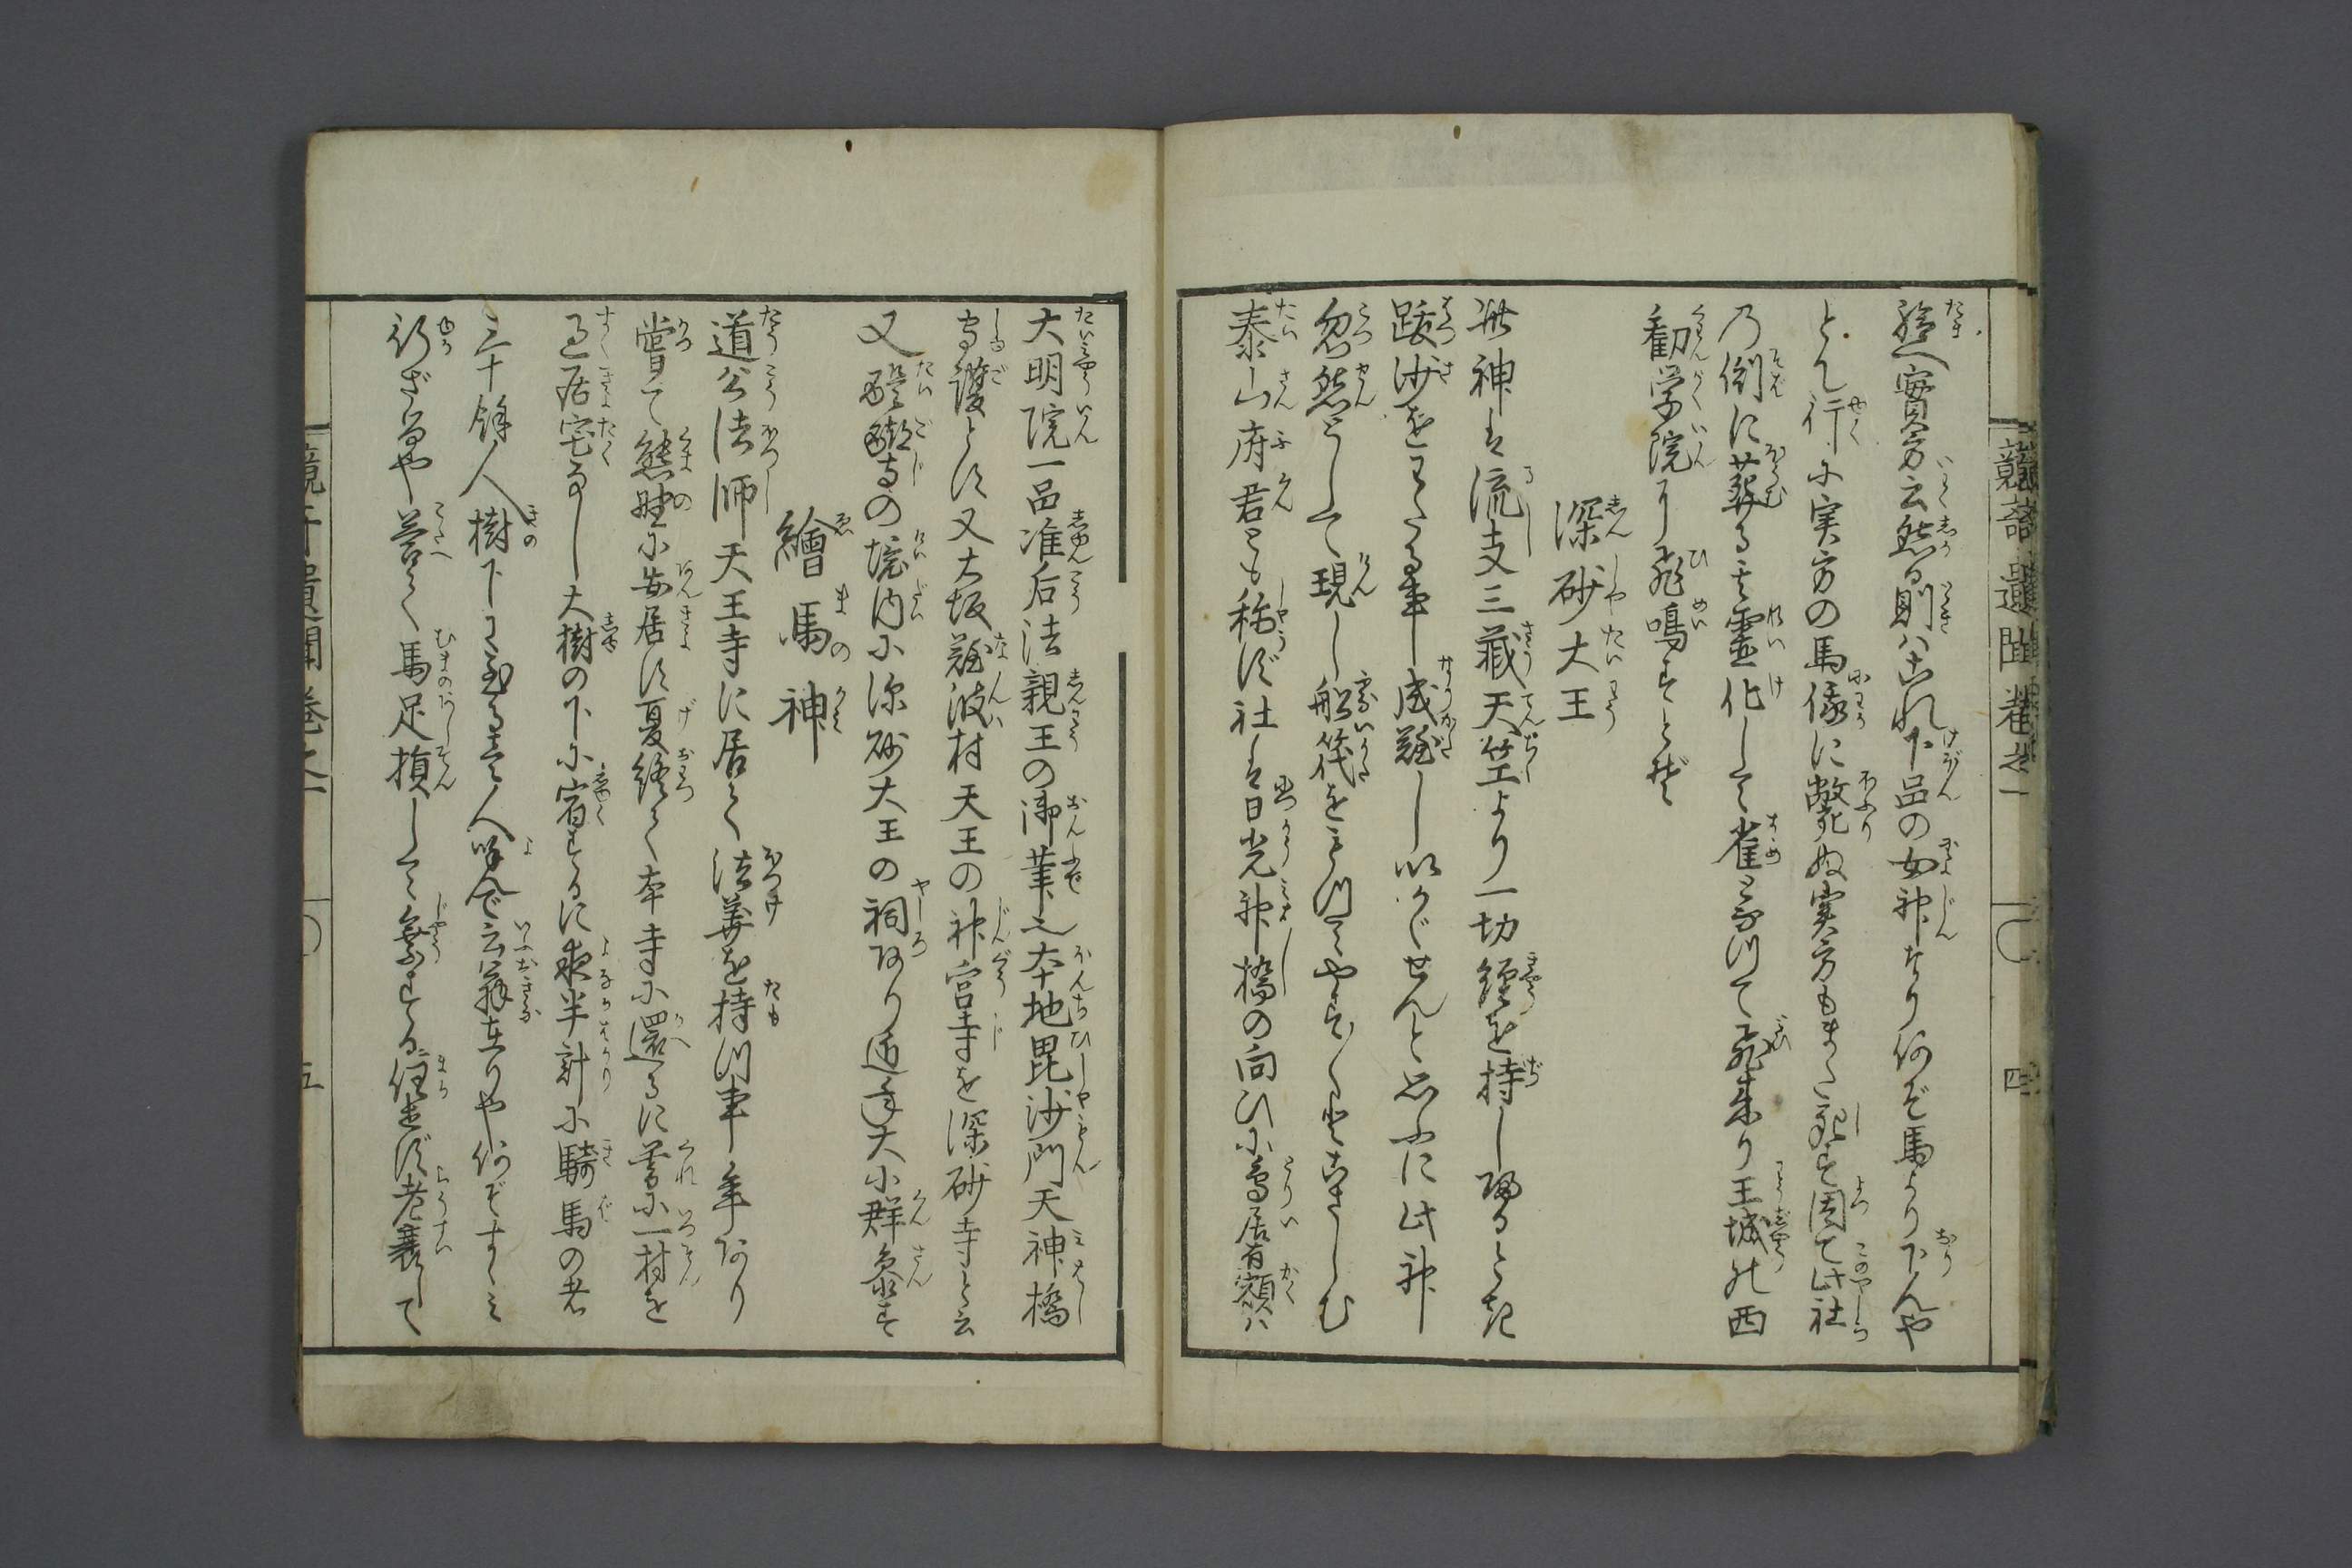 給へ實方云然る則ハこれ下品の女神なり何ぞ馬より下んや
とて行に実方の馬俄に斃ぬ実方もまた死す因て此社
乃側に葬る其霊化して雀となつて飛来り王城の西
勧学院に飛鳴すとぞ
深砂大王
此神は流支三蔵天竺より一切経を持し帰るとき
跋沙をわたる事成難し以かゞせんと思ふに此神
忽然として現し船筏をもつてやすく度さしむ
泰山府君とも称ず社は日光神橋の向ひに鳥居有額ハ
大明院一品准后法親王の御筆也本地毘沙門天神橋
守護とす又大坂難波村天王の神宮寺を深砂寺と云
又醍醐寺の境内に深砂大王の祠あり近年大小群参す
繪馬の神
道公法師天王寺に居て法華を持つ事年あり
嘗て熊野に安居す夏終て本寺に還るに暮に一村を
過居宅なし大樹の下に宿するに夜半計に騎馬の者
三十餘人樹下に至る其人呼んで云翁在りや何ぞすゝミ
行ざるや答て馬足損して乗する任せず老衰して
競奇遺聞巻之一
四
五